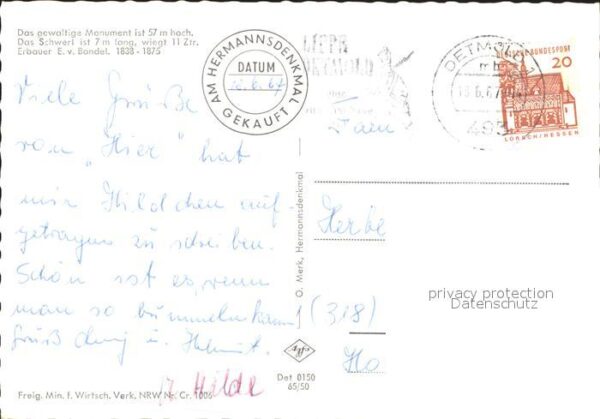 Das gewaltige Monument ist 57 m hoch.
Das Schwert ist 7 m lang, wiegt 11 Ztr.
Erbauer E. v. Bandel. 1838 - 1875
AM HERMANNSDENKMAL
DATUM
18.6.67
GEKAUFT
DETMOLD
DETMOLD
18.6.67
495
DEUTSCHE BUNDESPOST
20
LORSCH/HESSEN
Viele Grüße
von „Hier" hat
mir Hildchen auf-
getragen zu schreiben.
Schön ist es, wenn
man so bummeln kann!
Gruß u. Helmut.
Hilde
O. Merk, Hermannsdenkmal
Fam
(318)
privacy protection
Datenschutz
Agfa
Det 0150
85/50
Freig. Min. f. Wirtsch. Verk. NRW Nr. Cr. 1006